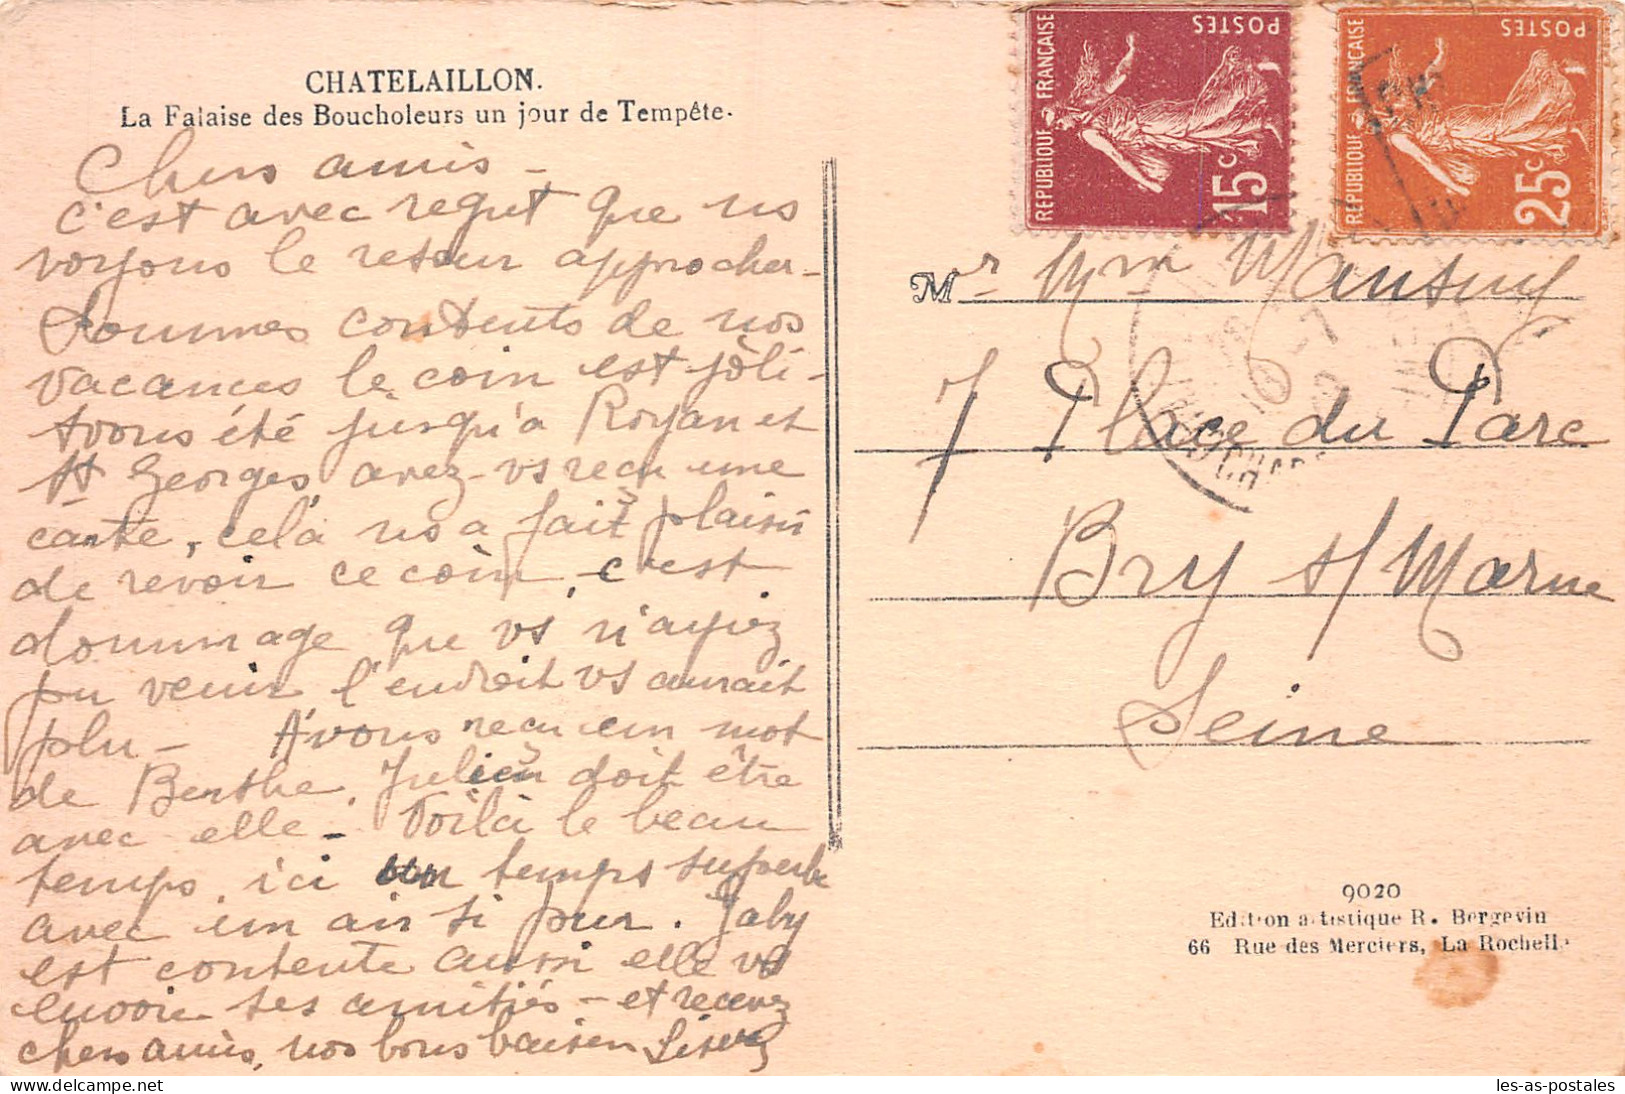 CHATELAILLON.
La Falaise des Boucholeurs un jour de Tempête.
Chers amis -
c'est avec regret que ns
voyons le retour approcher -
Sommes contents de nos
vacances le coin est joli -
Avons été jusqu'à Royan et
St Georges, avez-vs reçu une
carte, cela ns a fait plaisir
de revoir ce coin, c'est
dommage que vs n'ayiez
pu venir l'endroit vs aurait
plu - Avons reçu un mot
de Berthe, Julien doit être
avec elle - Voilà le beau
temps, ici un temps superbe
avec un air si pur. Gaby
est contente aussi elle vs
envoie ses amitiés - et recevez
chers amis, nos bons baisers
RÉPUBLIQUE FRANÇAISE
POSTES
15c
RÉPUBLIQUE FRANÇAISE
POSTES
25c
Mr Mme Mansuy
7 Place du Parc
Bry s/ Marne
Seine
9020
Edition artistique R. Bergevin
66 Rue des Merciers, La Rochelle
les-as-postales